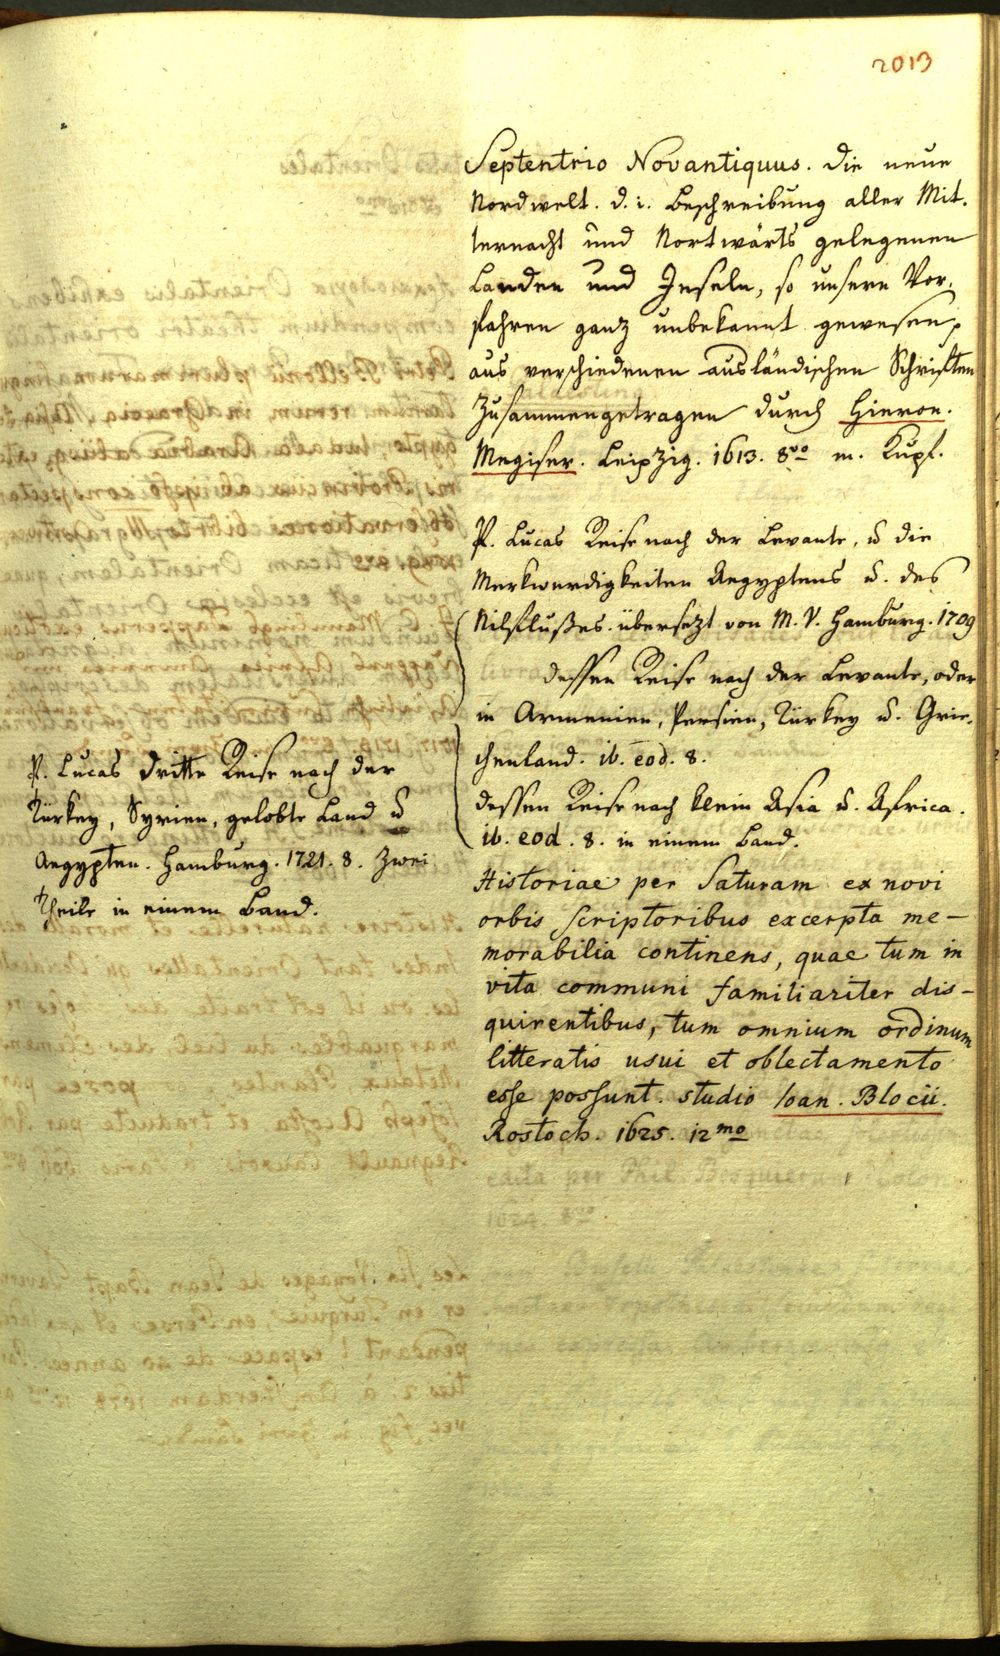 2013
Septentrio Novantiquus. die neue
Nordwelt. d. i. Beschreibung aller Mit.
ternacht und Nortwärts gelegenen
Landen und Inseln, so unsern Vor.
fahren ganz unbekannt gewesen,
aus verschiedenen ausländischen Schriften
zusammengetragen durch Hieron.
Megiser. Leipzig. 1613. 8vo m. Kupf.
P. Lucas Reise nach der Levante, u die
Merkwurdigkeiten Aegyptens u. des
Nilflußes. übersezt von M. V. Hamburg. 1709
dessen Reise nach der Levante, oder
in Armenien, Persien, Türkey u. Grie.
chenland. ib. eod. 8.
dessen Reise nach klein Asia u. Africa.
ib. eod. 8. in einem Band.
P. Lucas dritte Reise nach der
Türkey, Syrien, gelobte Land u
Aegypten. Hamburg. 1721. 8. Zwei
Theile in einem Band.
Historiae per Saturam ex novi
orbis scriptoribus excerpta me-
morabilia continens, quae tum in
vita communi familiariter dis-
quirentibus, tum omnium ordinum
litteratis usui et oblectamento
esse possunt. studio Ioan. Blocii.
Rostoch. 1625. 12mo